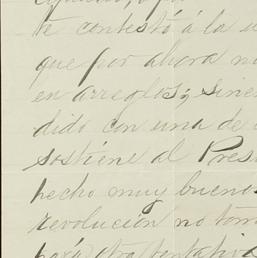 te contestó á la u
que por ahora no
en arreglos; sinc
dido con una de
sostiene al Pres
hecho muy bueno
revolución no tom
para otra tentativa